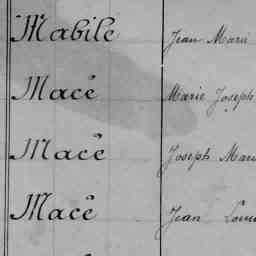 Mabile Jean Marie
Macé Marie Joseph
Macé Joseph Mari
Macé Jean Louis